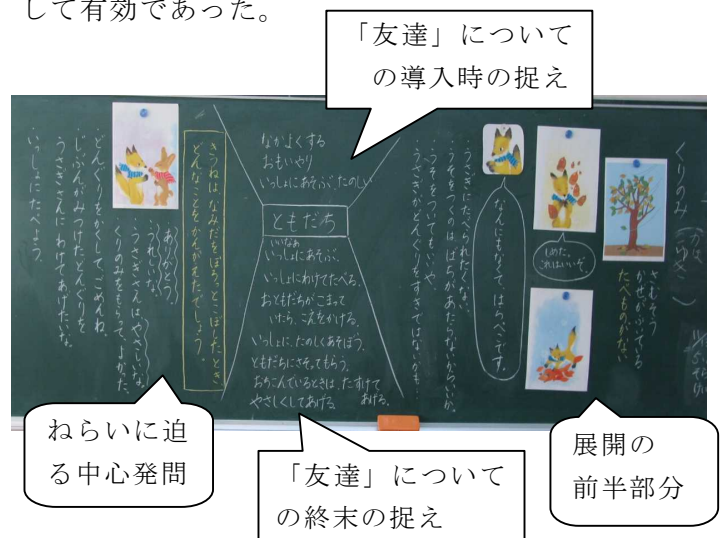 して有効であった。
「友達」について
の導入時の捉え
くりのみ
さむそう
かぜがふいている
たべものがない
しめた、
これはいいぞ。
なんにもなくて、はらぺこです。
・うさぎにたべられたくない。
・うそをつくのは、ばちがあたらないからいいか。
・うそをついてもいいや
・うさぎがどんぐりをすきではないかも。
なかよくする
おもいやり
いっしょにあそぶ、たのしい
ともだち
いいなあ
いっしょにあそぶ、
いっしょにわけてたべる。
おともだちがこまって
いたら、こえをかける。
いっしょに、たのしくあそぼう。
ともだちにさそってもらう。
おちこんでいるときは、たすけて
あげる。
やさしくしてあげる
きつねは、なみだをぽろっとこぼしたとき
どんなことをかんがえたでしょう。
ありがとう。
・うれしいな。
・うさぎさんは、やさしいな。
くりのみをもらって、よかった。
・どんぐりをかくして、ごめんね。
・じぶんがみつけたどんぐりを、
うさぎさんにわけてあげたいな。
いっしょにたべよう。
ねらいに迫
る中心発問
「友達」について
の終末の捉え
展開の
前半部分